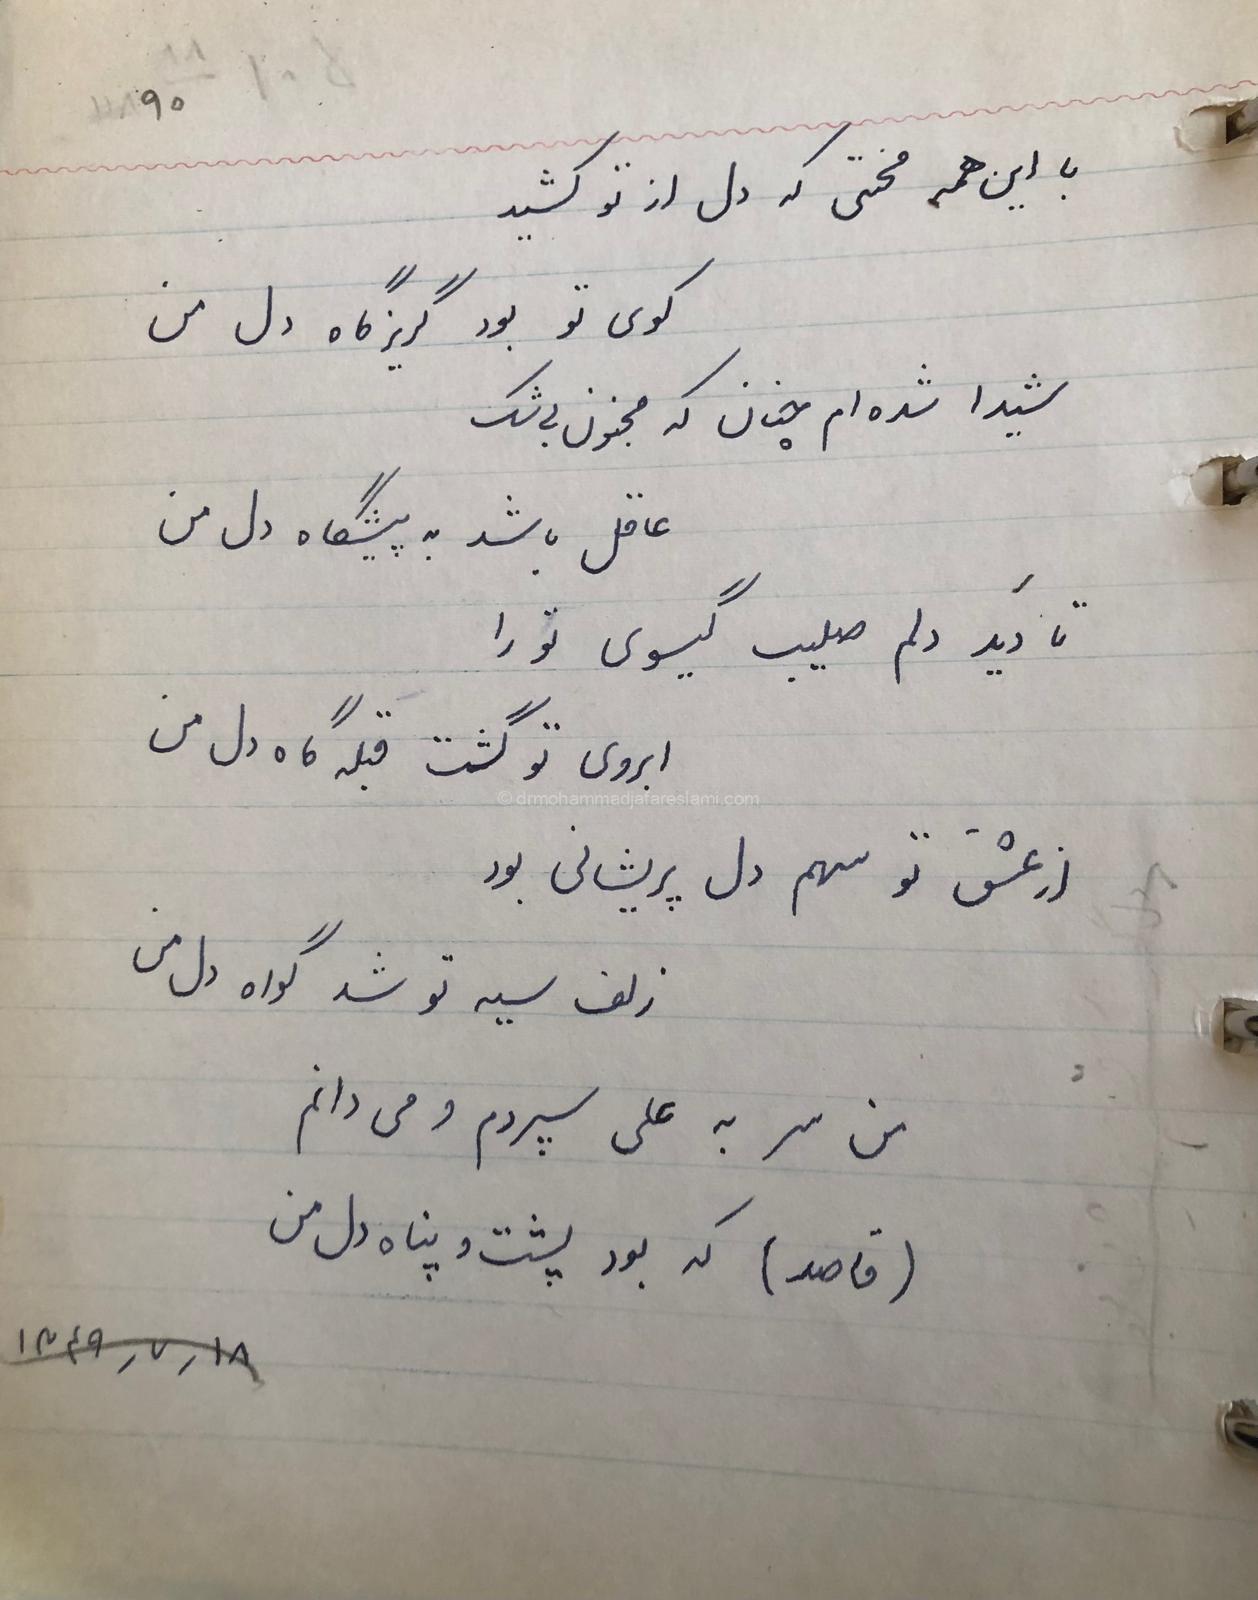 ۹۰
با این همه محنتی که دل از تو کشید
کوی تو بود گریزگاه دل من
شیدا شده ام چنان که مجنون بی شک
عاقل باشد به پیشگاه دل من
تا دید دلم صلیب گیسوی تو را
ابروی تو گشت قبله گاه دل من
© drmohammadjafareslami.com
از عشق تو سهم دل پریشانی بود
زلف سیه تو شد گواه دل من
من سر به علی سپردم و می دانم
(قاصد) که بود پشت و پناه دل من
۱۳۶۹٫۷٫۱۸